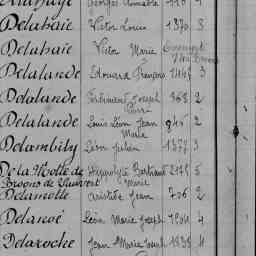 Delahaie Victor Louis 1370 3
Delahaie Victor Marie
Delalande Edouard François 3
Delalande Ferdinant Joseph Pierre 368 2
Delalande Louis Léon Jean Marie 945 2
Delambily Léon Julien 1372 3
De la Motte de Broons de Vauvert Hippolyte Bertrand Marie 2185 5
Delamotte Aristide Jean 706 2
Delanoë Léon Marie Joseph 1904 4
Delaroche Jean Marie Joseph 1838 4